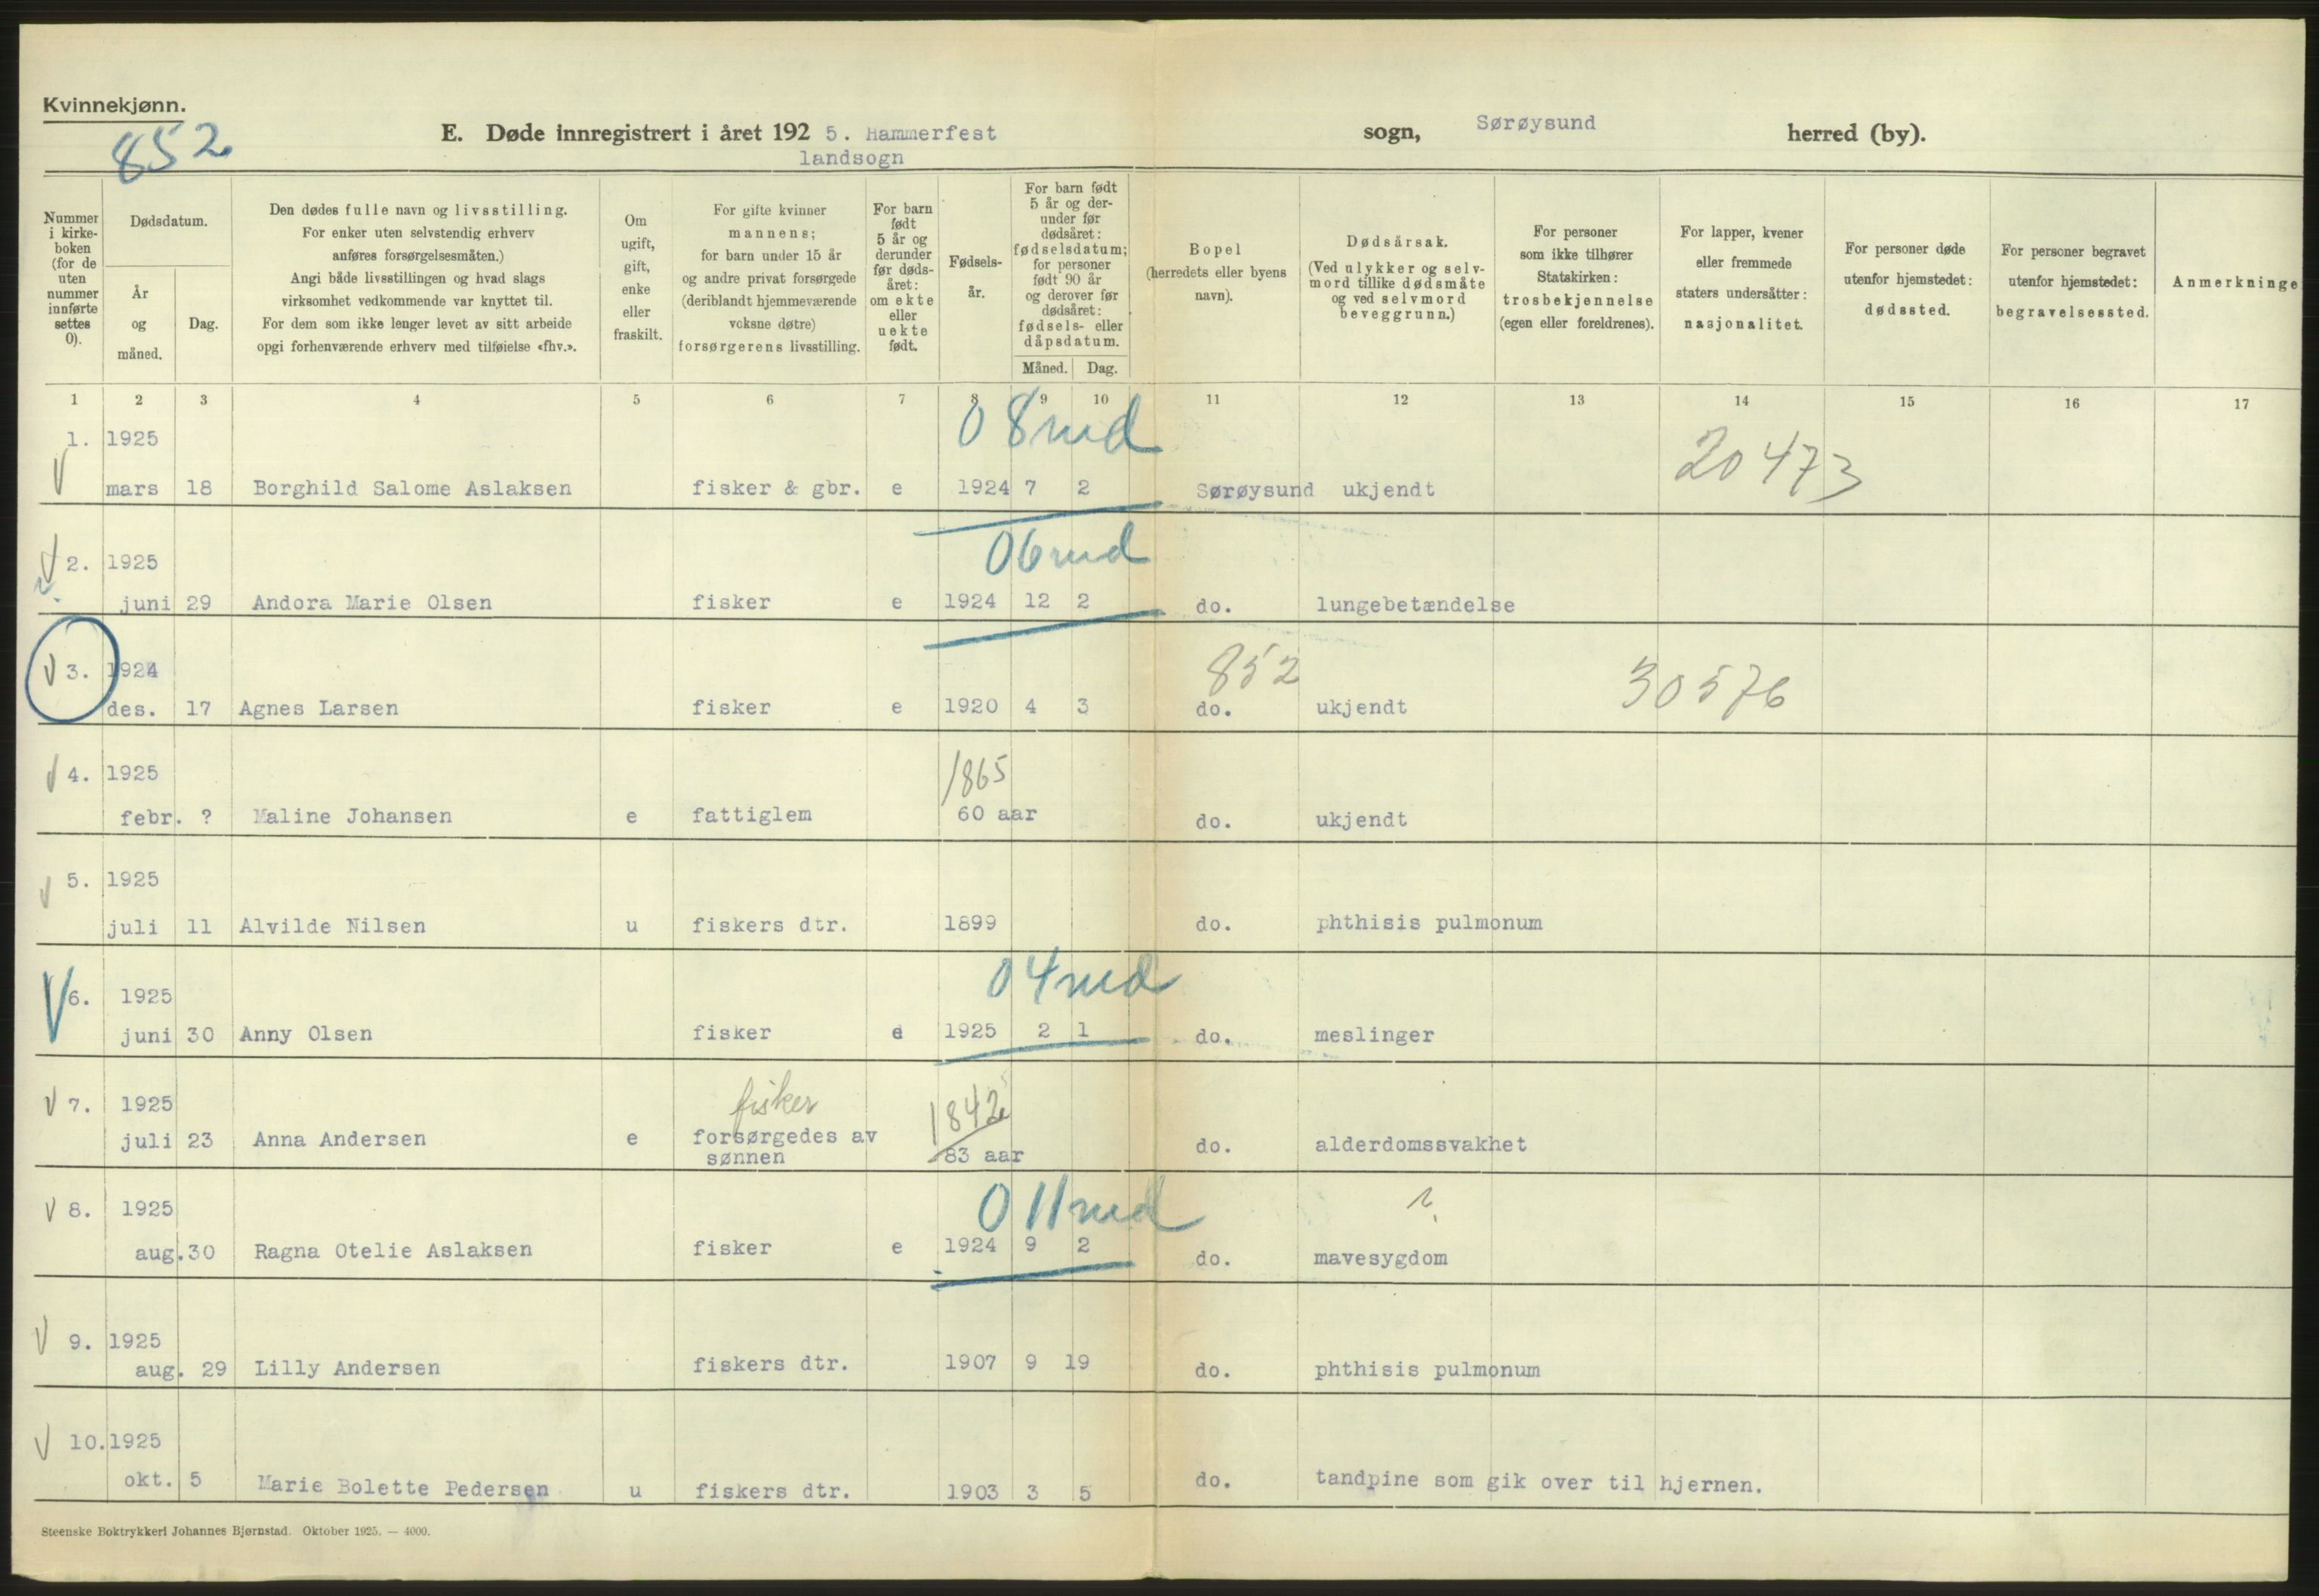 Kvinnekjønn.
852
E. Døde innregistrert i året 192 5. Hammerfest sogn, Sørøysund herred (by).
landsogn
Nummer i kirke- boken (for de uten nummer innførte settes 0).
Dødsdatum.
År og måned.
Dag.
Den dødes fulle navn og livsstilling.
For enker uten selvstendig erhverv
anføres forsørgelsesmåten.)
Angi både livsstillingen og hvad slags
virksomhet vedkommende var knyttet til.
For dem som ikke lenger levet av sitt arbeide
opgi forhenværende erhverv med tilføielse «fhv.».
Om
ugift,
gift,
enke
eller
fraskilt.
For gifte kvinner
mannens;
for barn under 15 år
og andre privat forsørgede
(deriblandt hjemmeværende
voksne døtre)
forsørgerens livsstilling.
For barn
født
5 år og
derunder
før døds-
året:
om ekte
eller
uekte
født.
Fødsels-
år.
For barn født
5 år og der-
under før
dødsåret:
fødselsdatum;
for personer
født 90 år
og derover før
dødsåret:
fødsels- eller
dåpsdatum.
Måned. Dag.
Bopel
(herredets eller byens
navn).
Dødsårsak.
(Ved ulykker og selv-
mord tillike dødsmåte
og ved selvmord
beveggrunn.)
For personer
som ikke tilhører
Statskirken:
trosbekjennelse
(egen eller foreldrenes).
For lapper, kvener
eller fremmede
staters undersåtter:
nasjonalitet.
For personer døde
utenfor hjemstedet:
dødssted.
For personer begravet
utenfor hjemstedet:
begravelsessted.
Anmerkninge
1 2 3 4 5 6 7 8 9 10 11 12 13 14 15 16 17
1. 1925 0 8 md 20473
mars 18 Borghild Salome Aslaksen fisker & gbr. e 1924 7 2 Sørøysund ukjendt
2. 1925 0 6 md
juni 29 Andora Marie Olsen fisker e 1924 12 2 do. lungebetændelse
3. 1924 852 30576
des. 17 Agnes Larsen fisker e 1920 4 3 do. ukjendt
4. 1925 1865
febr. ? Maline Johansen e fattiglem 60 aar do. ukjendt
5. 1925
juli 11 Alvilde Nilsen u fiskers dtr. 1899 do. phthisis pulmonum
6. 1925 0 4 md
juni 30 Anny Olsen fisker e 1925 2 1 do. meslinger
7. 1925 fisker 1842
juli 23 Anna Andersen e forsørgedes av do. alderdomssvakhet
sønnen 83 aar
8. 1925 0 11 md
aug. 30 Ragna Otelie Aslaksen fisker e 1924 9 2 do. mavesygdom
9. 1925
aug. 29 Lilly Andersen fiskers dtr. 1907 9 19 do. phthisis pulmonum
10. 1925
okt. 5 Marie Bolette Pedersen u fiskers dtr. 1903 3 5 do. tandpine som gik over til hjernen.
Steenske Boktrykkeri Johannes Bjørnstad. Oktober 1925. — 4000.